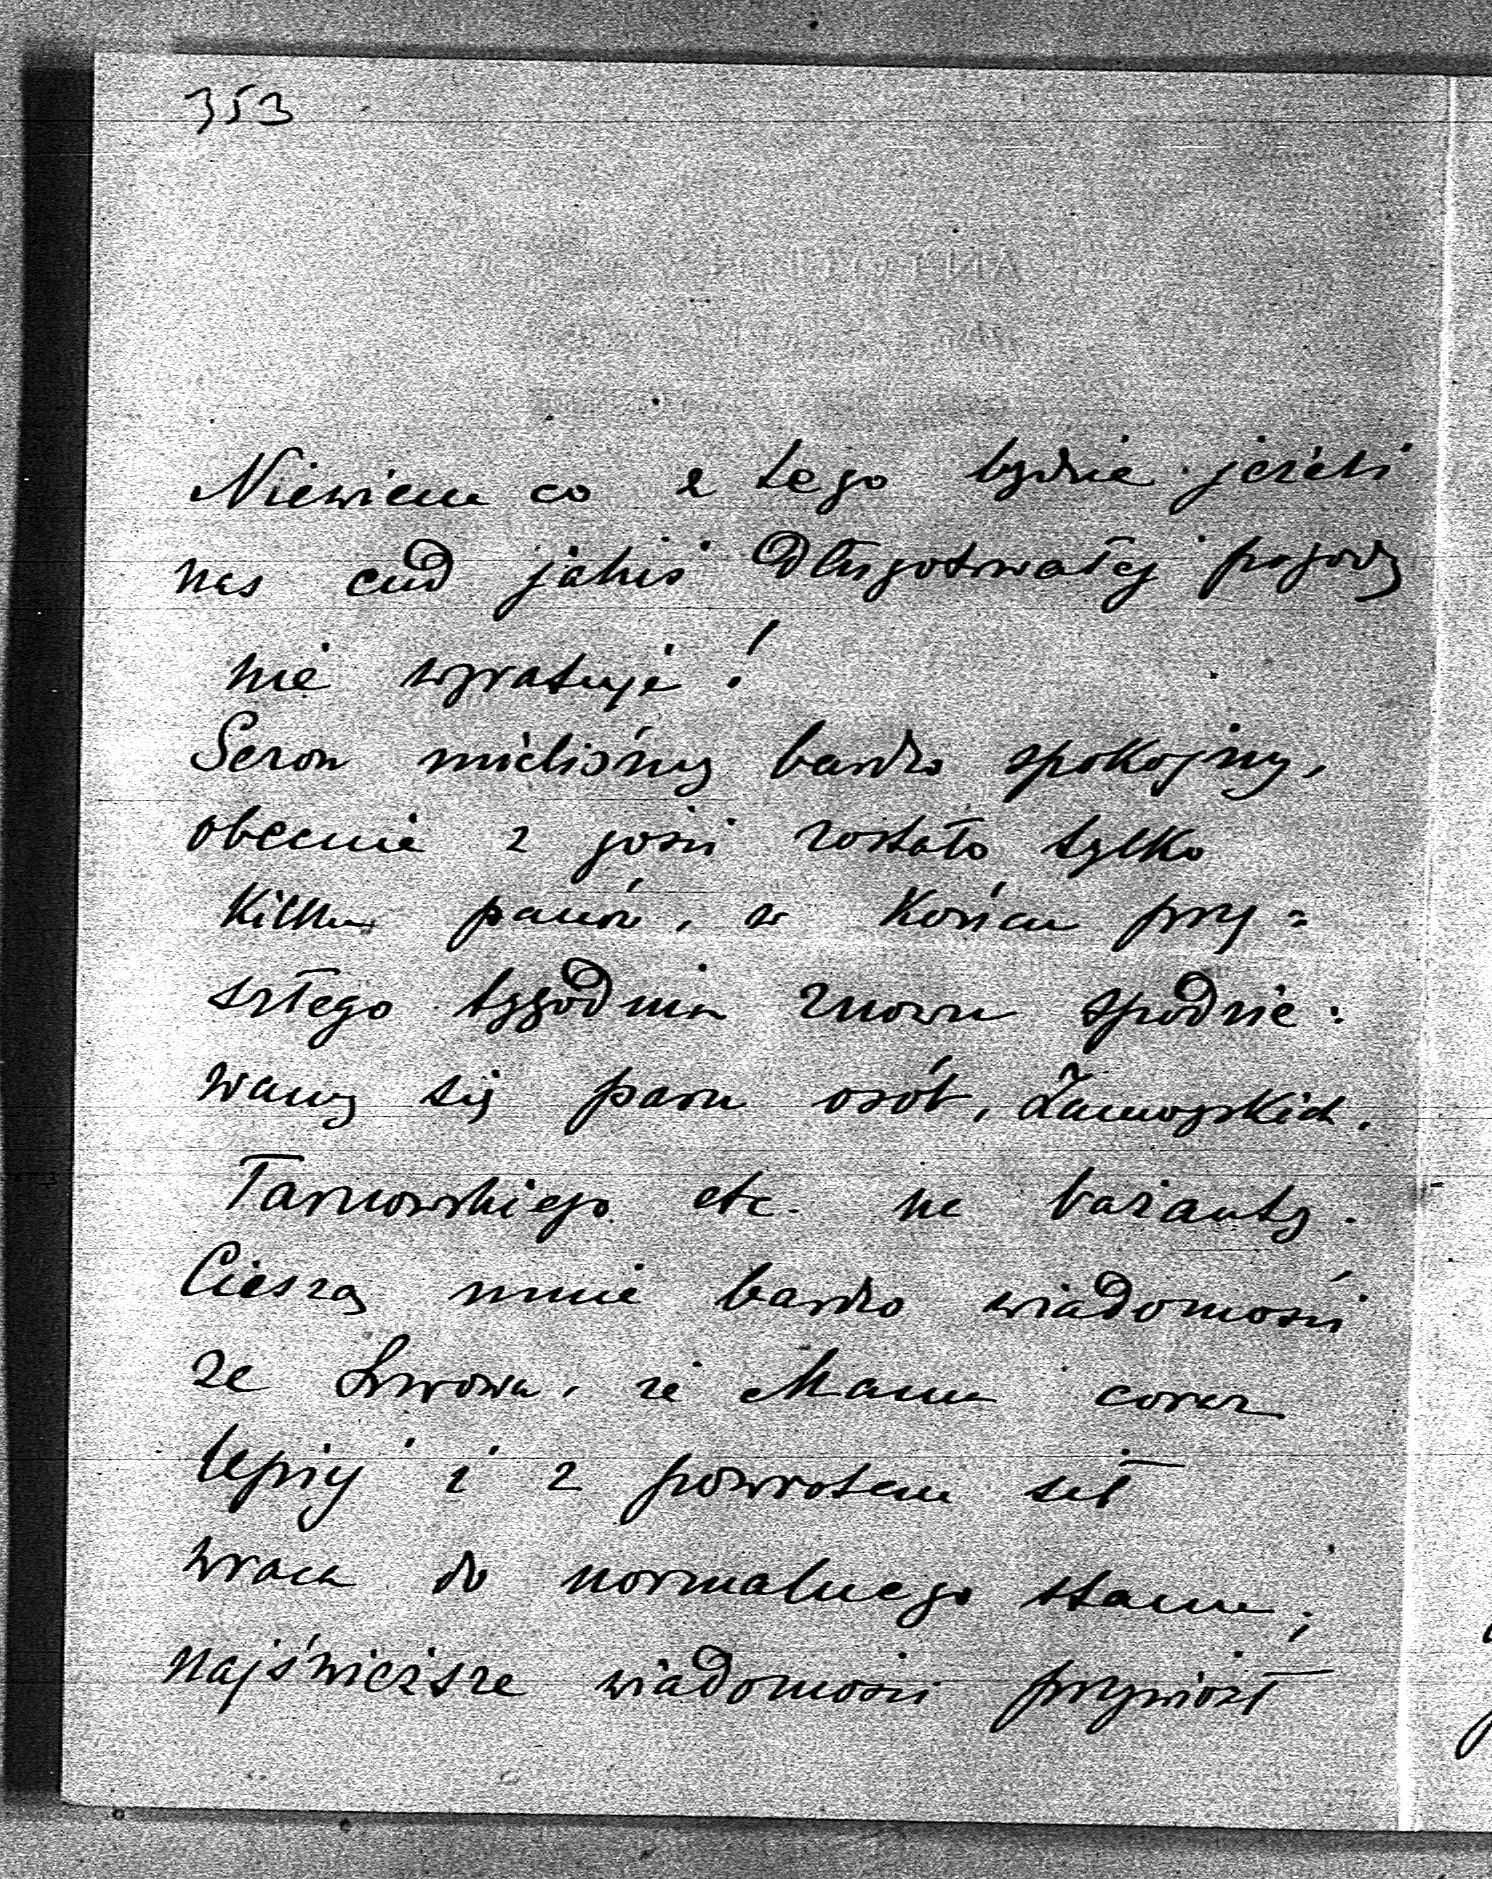 353
Niewiem co z tego będzie jeżeli
nas cud jakiś długotrwałej pogody
nie wyratuje!
Sezon mieliśmy bardzo spokojny,
obecnie z gości zostało tylko
kilku panów, w końcu przy=
szłego tygodnia znowu spodzie=
wamy się paru osób, Zamoyskich,
Tarnowskiego etc. na bażanty.
Cieszą mnie bardzo wiadomości
ze Lwowa, że Mama coraz
lepiej i z powrotem sił
wraca do normalnego stanu;
najświeższe wiadomości przywiózł